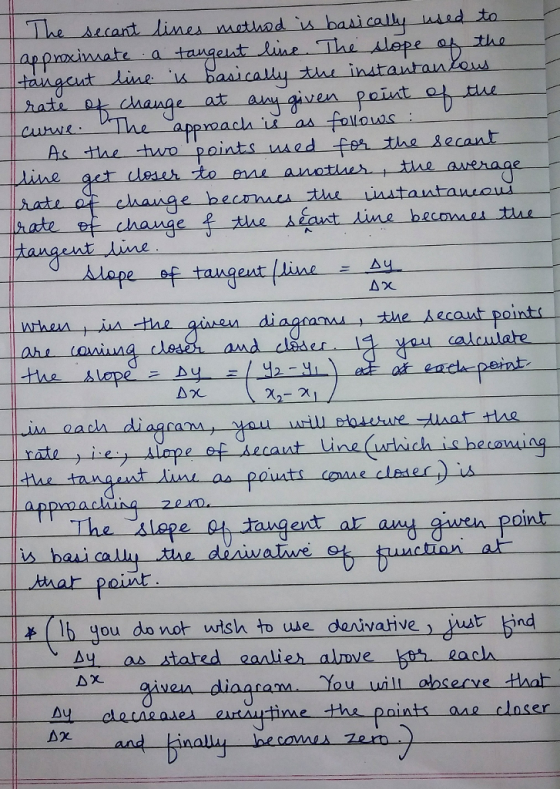 The secant lines method is basically used to
approximate a tangent line. The slope of the
tangent line is basically the instantaneous
rate of change at any given point of the
curve. The approach is as follows :
As the two points used for the secant
line get closer to one another, the average
rate of change becomes the instantaneous
rate of change & the secant line becomes the
tangent line.
Slope of tangent/line = Δy/Δx
When, in the given diagrams, the secant points
are coming closer and closer. If you calculate
the slope = Δy/Δx = (y2 - y1 / x2 - x1) at at each point
in each diagram, you will observe that the
rate, i.e., slope of secant line (which is becoming
the tangent line as points come closer,) is
approaching zero.
The slope of tangent at any given point
is basically the derivative of function at
that point.
* (If you do not wish to use derivative, just find
Δy/Δx as stated earlier above for each
given diagram. You will observe that
Δy/Δx decreases everytime the points are closer
and finally becomes zero.)